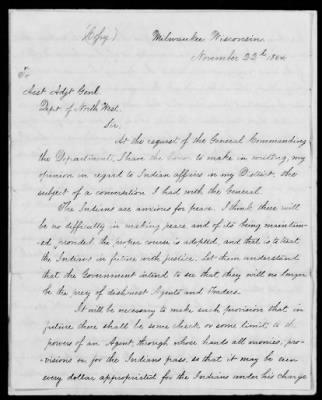 (Copy) Milwaukee Wisconsin
November 22d 1864
To
Asst Adjt Genl.
Dept of North West.
Sir,
At the request of the General Commanding
the Department, I have the honor to make in writing, my
opinion in regard to Indian affairs in my District, the
subject of a conversation I had with the General.
The Indians are anxious for peace. I think there will
be no difficulty in making peace and of its being maintain-
ed, provided the proper course is adopted, and that is to treat
the Indians in future with justice. Let them understand
that the Government intend to see that they will no longer
be the prey of dishonest Agents and Traders.
It will be necessary to make such provision that in
future there shall be some check or some limit, to the
powers of an Agent, through whose hands all monies, pro-
visions &c for the Indians pass, so that it may be seen
every dollar appropriated for the Indians under his charge